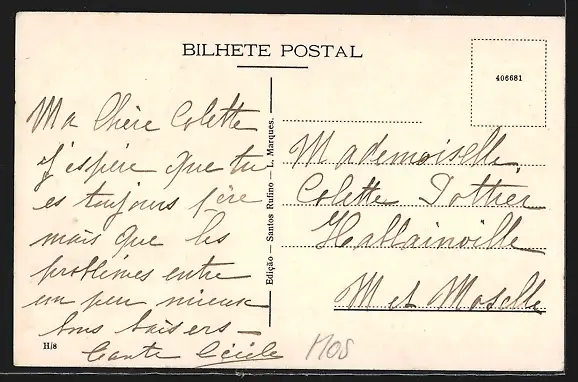 BILHETE POSTAL
406681
Ma Chère Colette
J'espère que tu
es toujours 1ère
mais que les
problèmes entre
un peu mieux
bons baisers —
tante Cécile
H/8
Edição — Santos Rufino — L. Marques.
Mademoiselle
Colette Pottier
Hablainville
M et Moselle
MOS